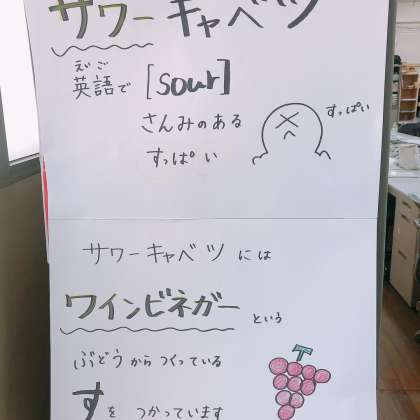 サワーキャベツ
えいご
英語で [sour]
さんみのある
すっぱい
すっぱい
サワーキャベツには
ワインビネガー という
ぶどうからつくっている
すを つかっています